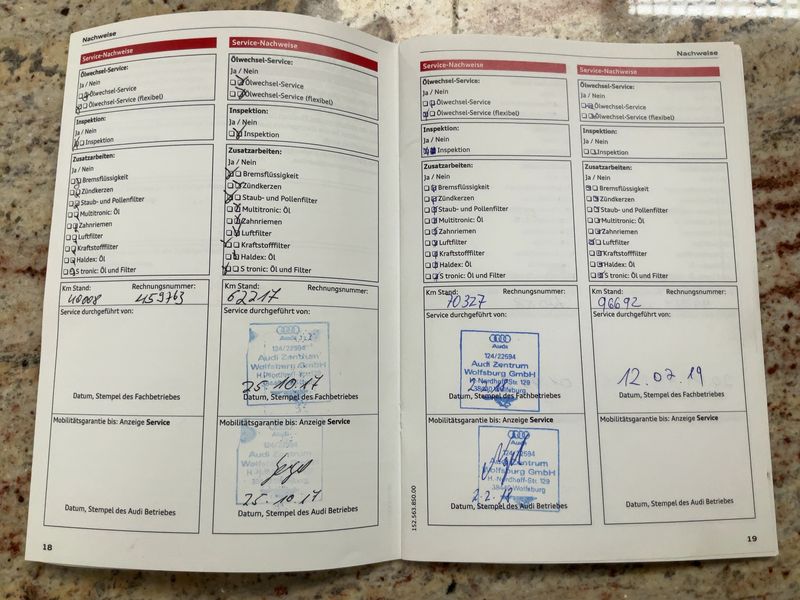 Nachweise
Service-Nachweise
Ölwechsel-Service:
Ja / Nein
Ölwechsel-Service
Ölwechsel-Service (flexibel)
Inspektion:
Ja / Nein
Inspektion
Zusatzarbeiten:
Ja / Nein
Bremsflüssigkeit
Zündkerzen
Staub- und Pollenfilter
Multitronic: Öl
Zahnriemen
Luftfilter
Kraftstofffilter
Haldex: Öl
S tronic: Öl und Filter
Km Stand: Rechnungsnummer:
40008 459763
Service durchgeführt von:
Datum, Stempel des Fachbetriebes
Mobilitätsgarantie bis: Anzeige Service
Datum, Stempel des Audi Betriebes
18
Service-Nachweise
Ölwechsel-Service:
Ja / Nein
Ölwechsel-Service
Ölwechsel-Service (flexibel)
Inspektion:
Ja / Nein
Inspektion
Zusatzarbeiten:
Ja / Nein
Bremsflüssigkeit
Zündkerzen
Staub- und Pollenfilter
Multitronic: Öl
Zahnriemen
Luftfilter
Kraftstofffilter
Haldex: Öl
S tronic: Öl und Filter
Km Stand: Rechnungsnummer:
62217
Service durchgeführt von:
124/22594
Audi Zentrum
Wolfsburg GmbH
25.10.17
Datum, Stempel des Fachbetriebes
Mobilitätsgarantie bis: Anzeige Service
Audi
Audi Zentrum
Wolfsburg
25.10.17
Datum, Stempel des Audi Betriebes
Nachweise
Service-Nachweise
Ölwechsel-Service:
Ja / Nein
Ölwechsel-Service
Ölwechsel-Service (flexibel)
Inspektion:
Ja / Nein
Inspektion
Zusatzarbeiten:
Ja / Nein
Bremsflüssigkeit
Zündkerzen
Staub- und Pollenfilter
Multitronic: Öl
Zahnriemen
Luftfilter
Kraftstofffilter
Haldex: Öl
S tronic: Öl und Filter
Km Stand: Rechnungsnummer:
70327
Service durchgeführt von:
Audi
124/22594
Audi Zentrum
Wolfsburg GmbH
H. Nordhoff-Str. 129
38440 Wolfsburg
Datum, Stempel des Fachbetriebes
Mobilitätsgarantie bis: Anzeige Service
Audi
124/22594
Audi Zentrum
Wolfsburg GmbH
H. Nordhoff-Str. 129
38440 Wolfsburg
2.2.18
Datum, Stempel des Audi Betriebes
152.563.850.00
Service-Nachweise
Ölwechsel-Service:
Ja / Nein
Ölwechsel-Service
Ölwechsel-Service (flexibel)
Inspektion:
Ja / Nein
Inspektion
Zusatzarbeiten:
Ja / Nein
Bremsflüssigkeit
Zündkerzen
Staub- und Pollenfilter
Multitronic: Öl
Zahnriemen
Luftfilter
Kraftstofffilter
Haldex: Öl
S tronic: Öl und Filter
Km Stand: Rechnungsnummer:
96692
Service durchgeführt von:
12.02.19
Datum, Stempel des Fachbetriebes
Mobilitätsgarantie bis: Anzeige Service
Datum, Stempel des Audi Betriebes
19